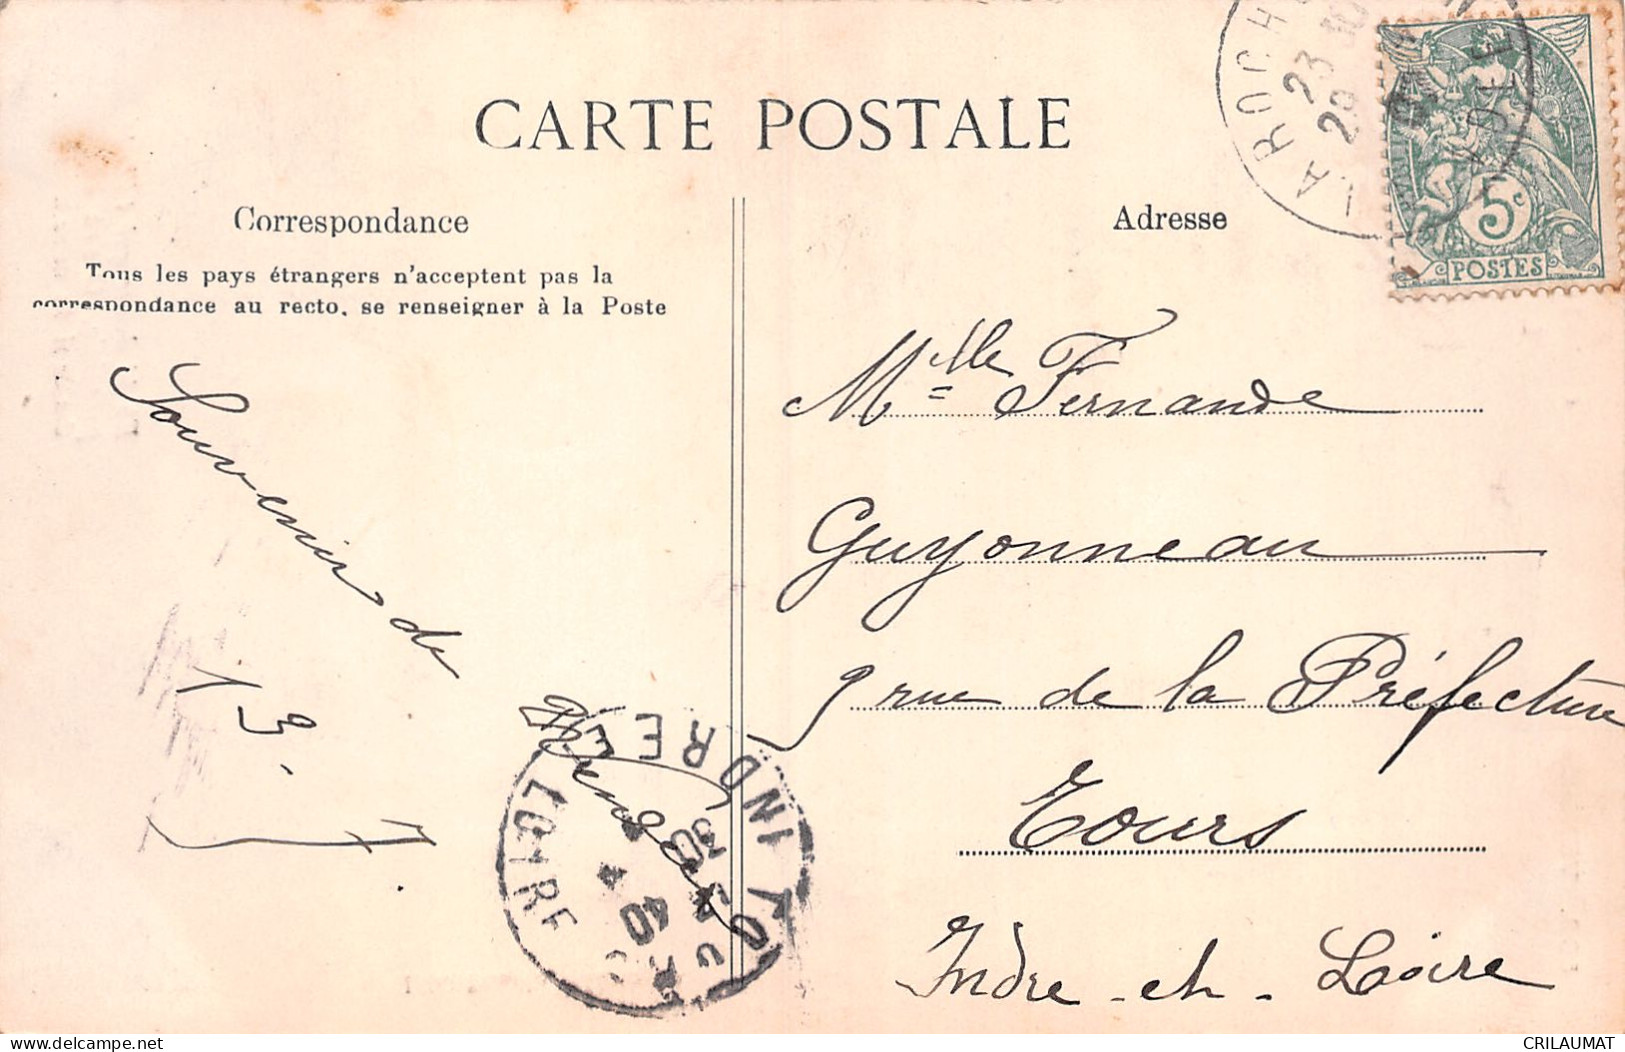 CARTE POSTALE
Correspondance
Tous les pays étrangers n'acceptent pas la
correspondance au recto, se renseigner à la Poste
Adresse
LA ROCH
23
5c
POSTES
Souvenir de
Mlle Fernande
Guyonneau
9 rue de la Préfecture
Tours
Indre-et-Loire
TOURS
INDRE ET LOIRE
CRILAUMAT